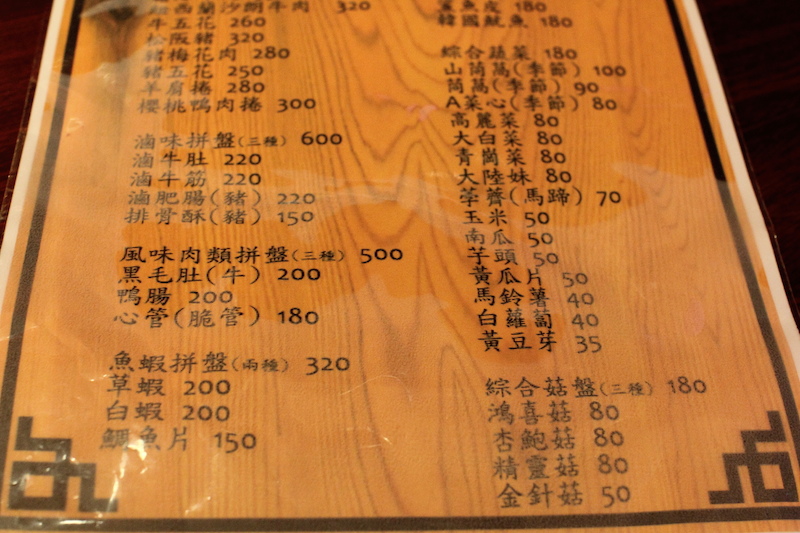 紐西蘭沙朗牛肉 320
牛五花 260
松阪豬 320
豬梅花肉 280
豬五花 250
羊腐捲 280
櫻桃鴨肉捲 300
滷味拼盤(三種) 600
滷牛肚 220
滷牛筋 220
滷肥腸(豬) 220
排骨酥(豬) 150
風味肉類拼盤(三種) 500
黑毛肚(牛) 200
鴨腸 200
心管(脆管) 180
魚蝦拼盤(兩種) 320
草蝦 200
白蝦 200
鯛魚片 150
魚皮 180
韓國魷魚 180
綜合蔬菜 180
山茼萵(季節) 100
茼萵(季節) 90
A菜心(季節) 80
高麗菜 80
大白菜 80
青崗菜 80
大陸妹 80
荸薺(馬蹄) 70
玉米 50
南瓜 50
芋頭 50
黃瓜片 50
馬鈴薯 40
白蘿蔔 40
黃豆芽 35
綜合菇盤(三種) 180
鴻喜菇 80
杏鮑菇 80
精靈菇 80
金針菇 50